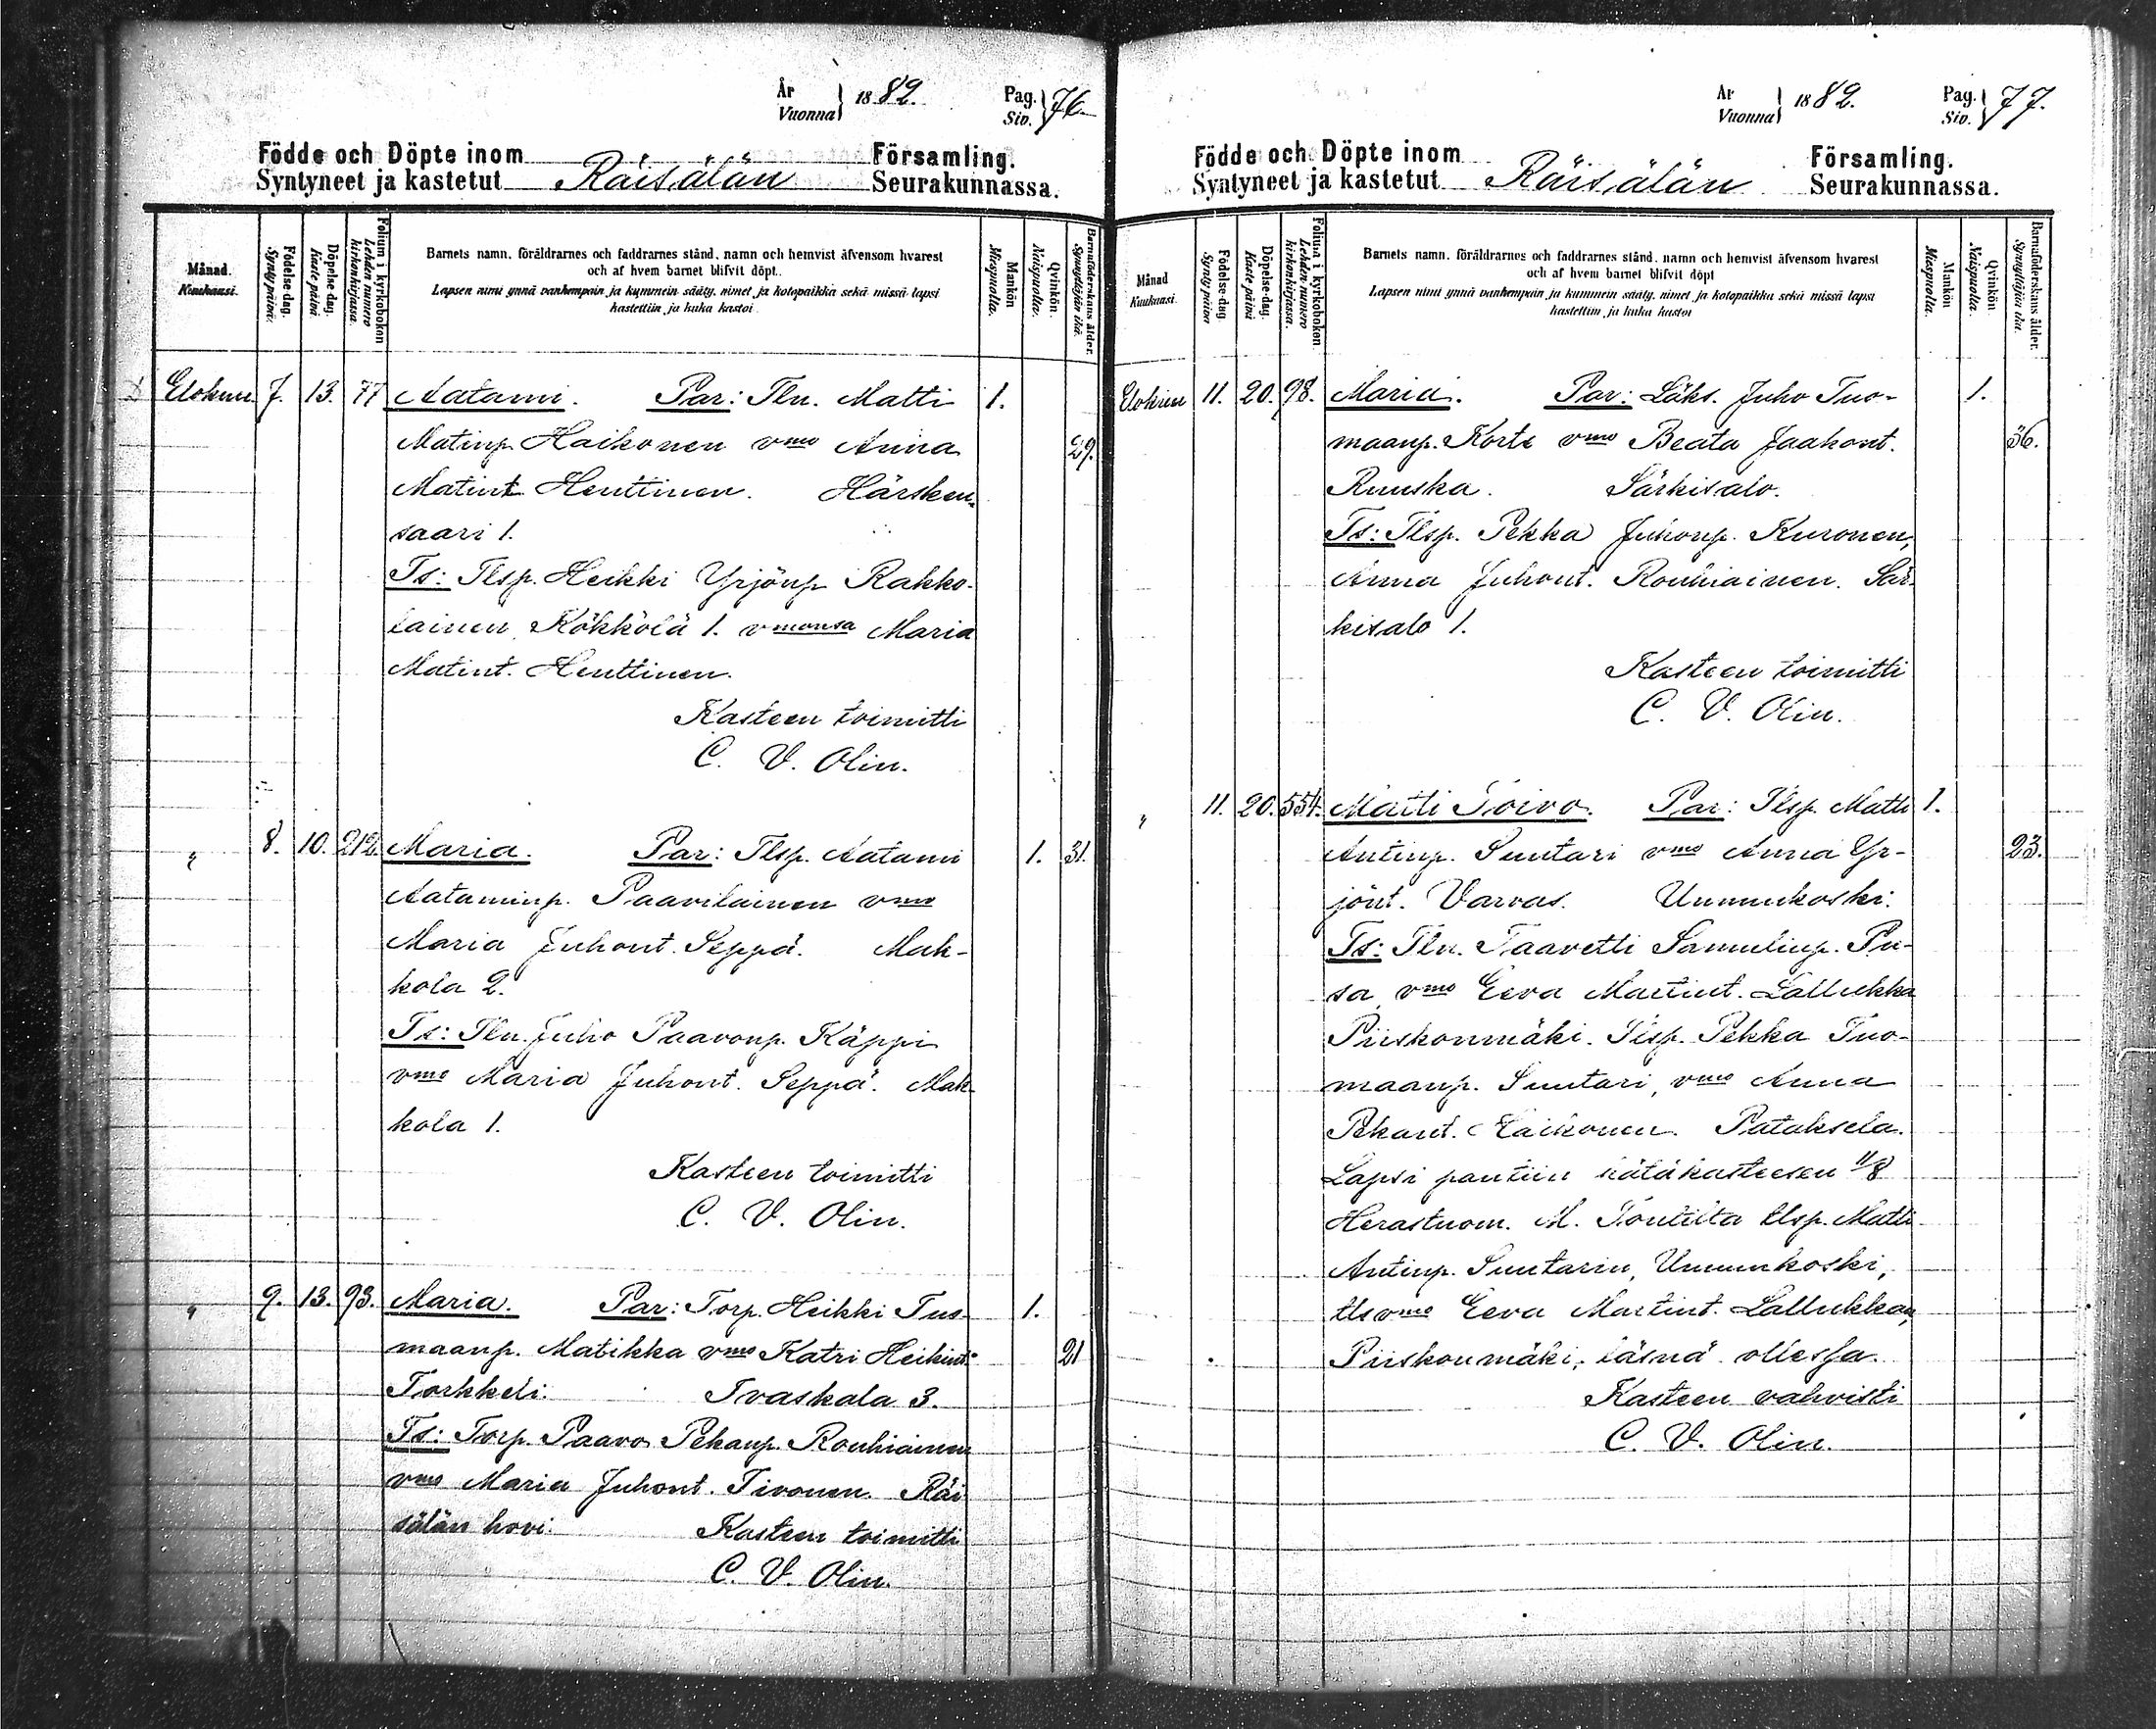 År
Vuonna } 1882.
Pag.
Siv. } 76
Födde och Döpte inom Församling.
Syntyneet ja kastetut Räisälän Seurakunnassa.
Månad.
Kuukausi.
Födelse dag.
Synty päivä.
Döpelse dag.
Kaste päivä
Folium i kyrkobokon
Lehden numero
kirkonkirjassa.
Barnets namn, föräldrarnes och faddrarnes stånd, namn och hemvist äfvensom hvarest
och af hvem barnet blifvit döpt.
Lapsen nimi ynnä vanhempain ja kummein sääty, nimet ja kotopaikka sekä missä lapsi
kastettiin ja kuka kastoi
Mankön
Miespuolta.
Qvinkön.
Naispuolta.
Barnaföderskans ålder.
Synnyttäjän ikä.
Elokuu 7. 13. 77 Aatami. Par: Tln. Matti 1.
Matinp. Haikonen vmo Anna 29.
Matint Henttinen. Härsken-
saari 1.
Ts: Tlsp. Heikki Yrjönp Rakko-
lainen, Kökkölä 1. vmonsa Maria
Matint. Henttinen.
Kasteen toimitti
C. V. Olin.
" 8. 10. 212 Maria. Par: Tlsp. Aatami 1. 31.
Aataminp. Paavilainen vmo
Maria Juhont. Seppä. Mak-
kola 2.
Ts: Tln. Juho Paavonp. Käppi
vmo Maria Juhont. Seppä. Mak-
kola 1.
Kasteen toimitti
C. V. Olin.
" 9. 13. 93. Maria. Par: Torp. Heikki Tuo- 1.
maanp. Matikka vmo Katri Heikint. 21
Torkkeli. Ivaskala 3.
Ts: Torp. Paavo Pekanp. Rouhiainen
vmo Maria Juhont. Tivonen. Räi
sälän hovi. Kasteen toimitti
C. V. Olin.
År
Vuonna } 1882.
Pag.
Siv. } 77.
Födde och Döpte inom Församling.
Syntyneet ja kastetut Räisälän Seurakunnassa.
Månad
Kuukausi
Födelse-dag.
Synty päivä
Döpelse-dag.
Kaste päivä
Folium i kyrkobokon.
Lehden numero
kirkonkirjassa.
Barnets namn, föräldrarnes och faddrarnes stånd, namn och hemvist äfvensom hvarest
och af hvem barnet blifvit döpt
Lapsen nimi ynnä vanhempain ja kummein sääty, nimet ja kotopaikka sekä missä lapsi
kastettiin ja kuka kastoi
Mankön
Miespuolta.
Qvinkön
Naispuolta.
Barnaföderskans ålder.
Synnyttäjän ikä.
Elokuu 11. 20. 98. Maria. Par: Läks. Juho Tuo- 1.
maanp. Korte vmo Beata Jaakont. 36.
Ruuska. Särkisalo.
Ts: Tlsp. Pekka Juhonp. Kuronen,
Anna Juhont. Rouhiainen. Sär-
kisalo 1.
Kasteen toimitti
C. V. Olin.
" 11. 20. 554. Matti Toivo. Par: Tlsp. Matti 1.
Antinp. Suutari vmo Anna Yr- 23.
jönt. Varvas. Unnunkoski.
Ts: Tln. Taavetti Samulinp. Pu-
sa, vmo Eeva Martint. Lallukka
Piiskonmäki. Tlsp. Pekka Tuo-
maanp. Suutari, vmo Anna
Pekant. Haikonen. Pataksela.
Lapsi pantiin hätäkasteesen 11/8
Herastuom. M. Tontilta tlsp. Matti
Antinp. Suutarin, Unnunkoski,
tls vmo Eeva Martint. Lallukkan,
Piiskonmäki, läsnä ollessa.
Kasteen vahvisti
C. V. Olin.